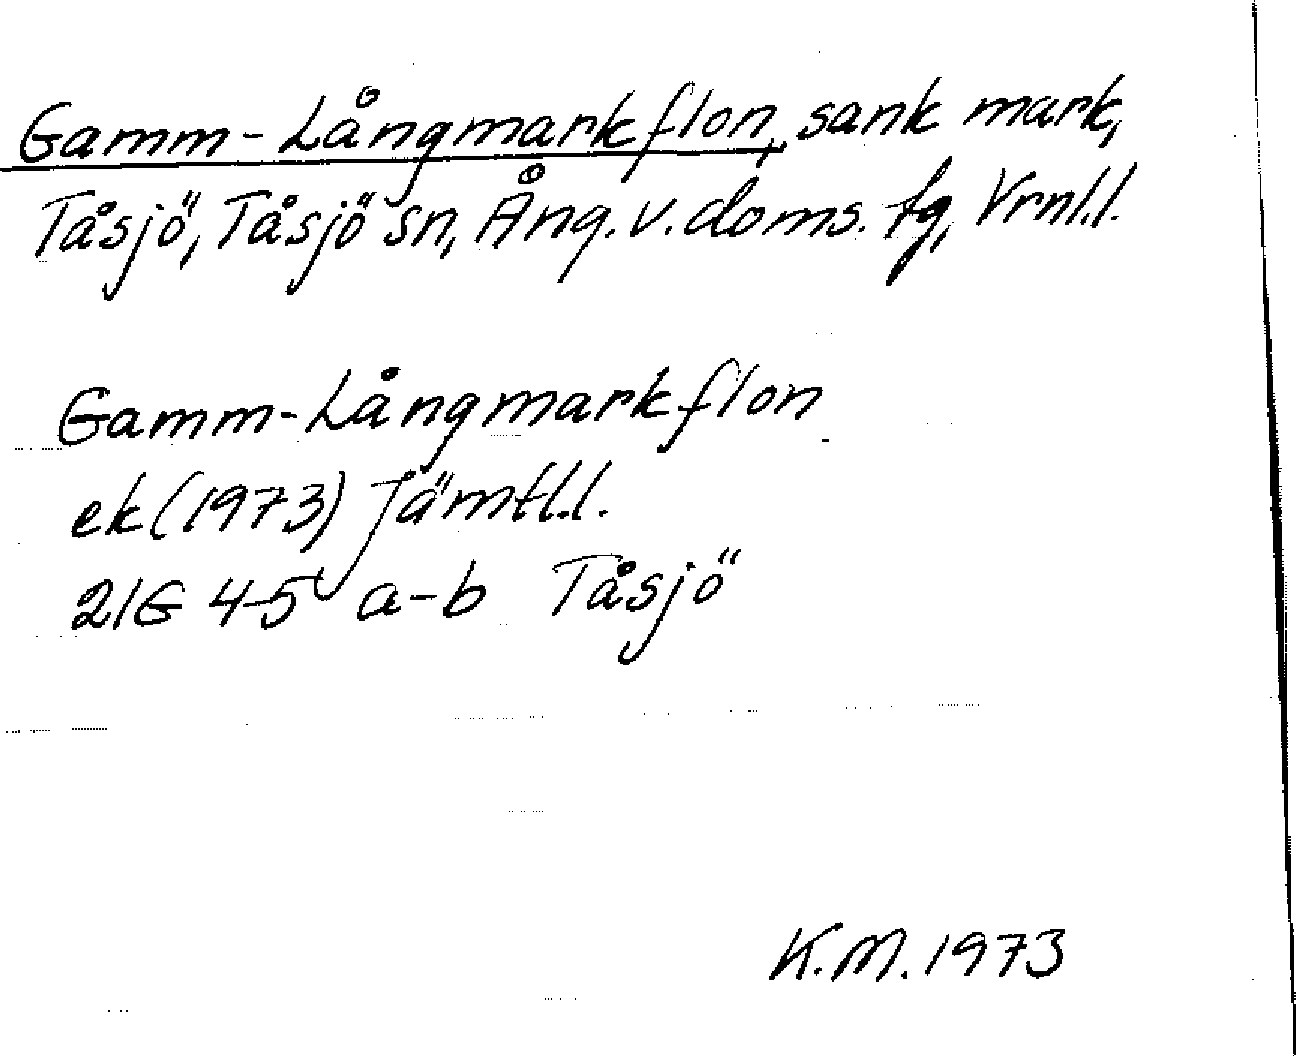 Gamm-Långmarkflon, sank mark,
Tåsjö, Tåsjö sn, Ång. v. doms. tg, Vrnl.l.
Gamm-Långmarkflon
ek (1973) Jämtl.l.
21G 4-5 a-b Tåsjö
K.M. 1973